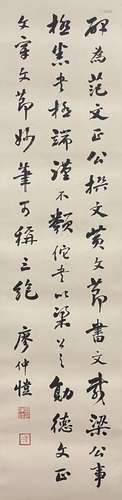 碑為范文正公撰文黃文節書文載梁公事
極悉書極端謹不類佗書以梁公之勛德文正
文章文節妙筆可稱三絕 廖仲愷